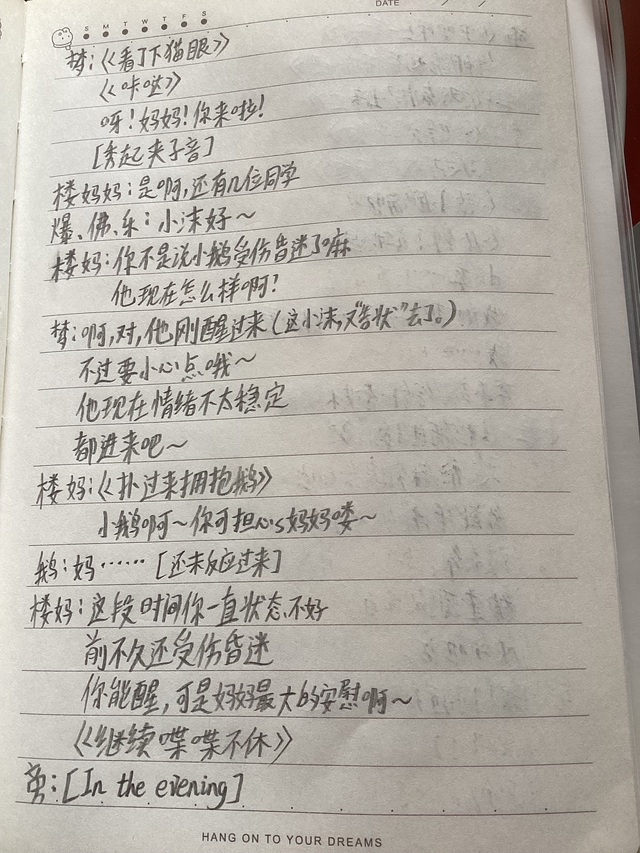 DATE
S M T W T F S
梦:《看了下猫眼》
《咔哒》
呀!妈妈!你来啦!
[秀起夹子音]
楼妈妈:是啊,还有几位同学
爆、佛、乐:小沫好~
楼妈:你不是说小鹅受伤昏迷了嘛
他现在怎么样啊?
梦:啊,对,他刚醒过来(这小沫,又"告状"去了。)
不过要小心点哦~
他现在情绪不太稳定
都进来吧~
楼妈:《扑过来拥抱鹅》
小鹅啊~你可担心s妈妈喽~
鹅:妈……[还未反应过来]
楼妈:这段时间你一直状态不好
前不久还受伤昏迷
你能醒,可是妈妈最大的安慰啊~
《继续喋喋不休》
旁:[In the evening]
HANG ON TO YOUR DREAMS